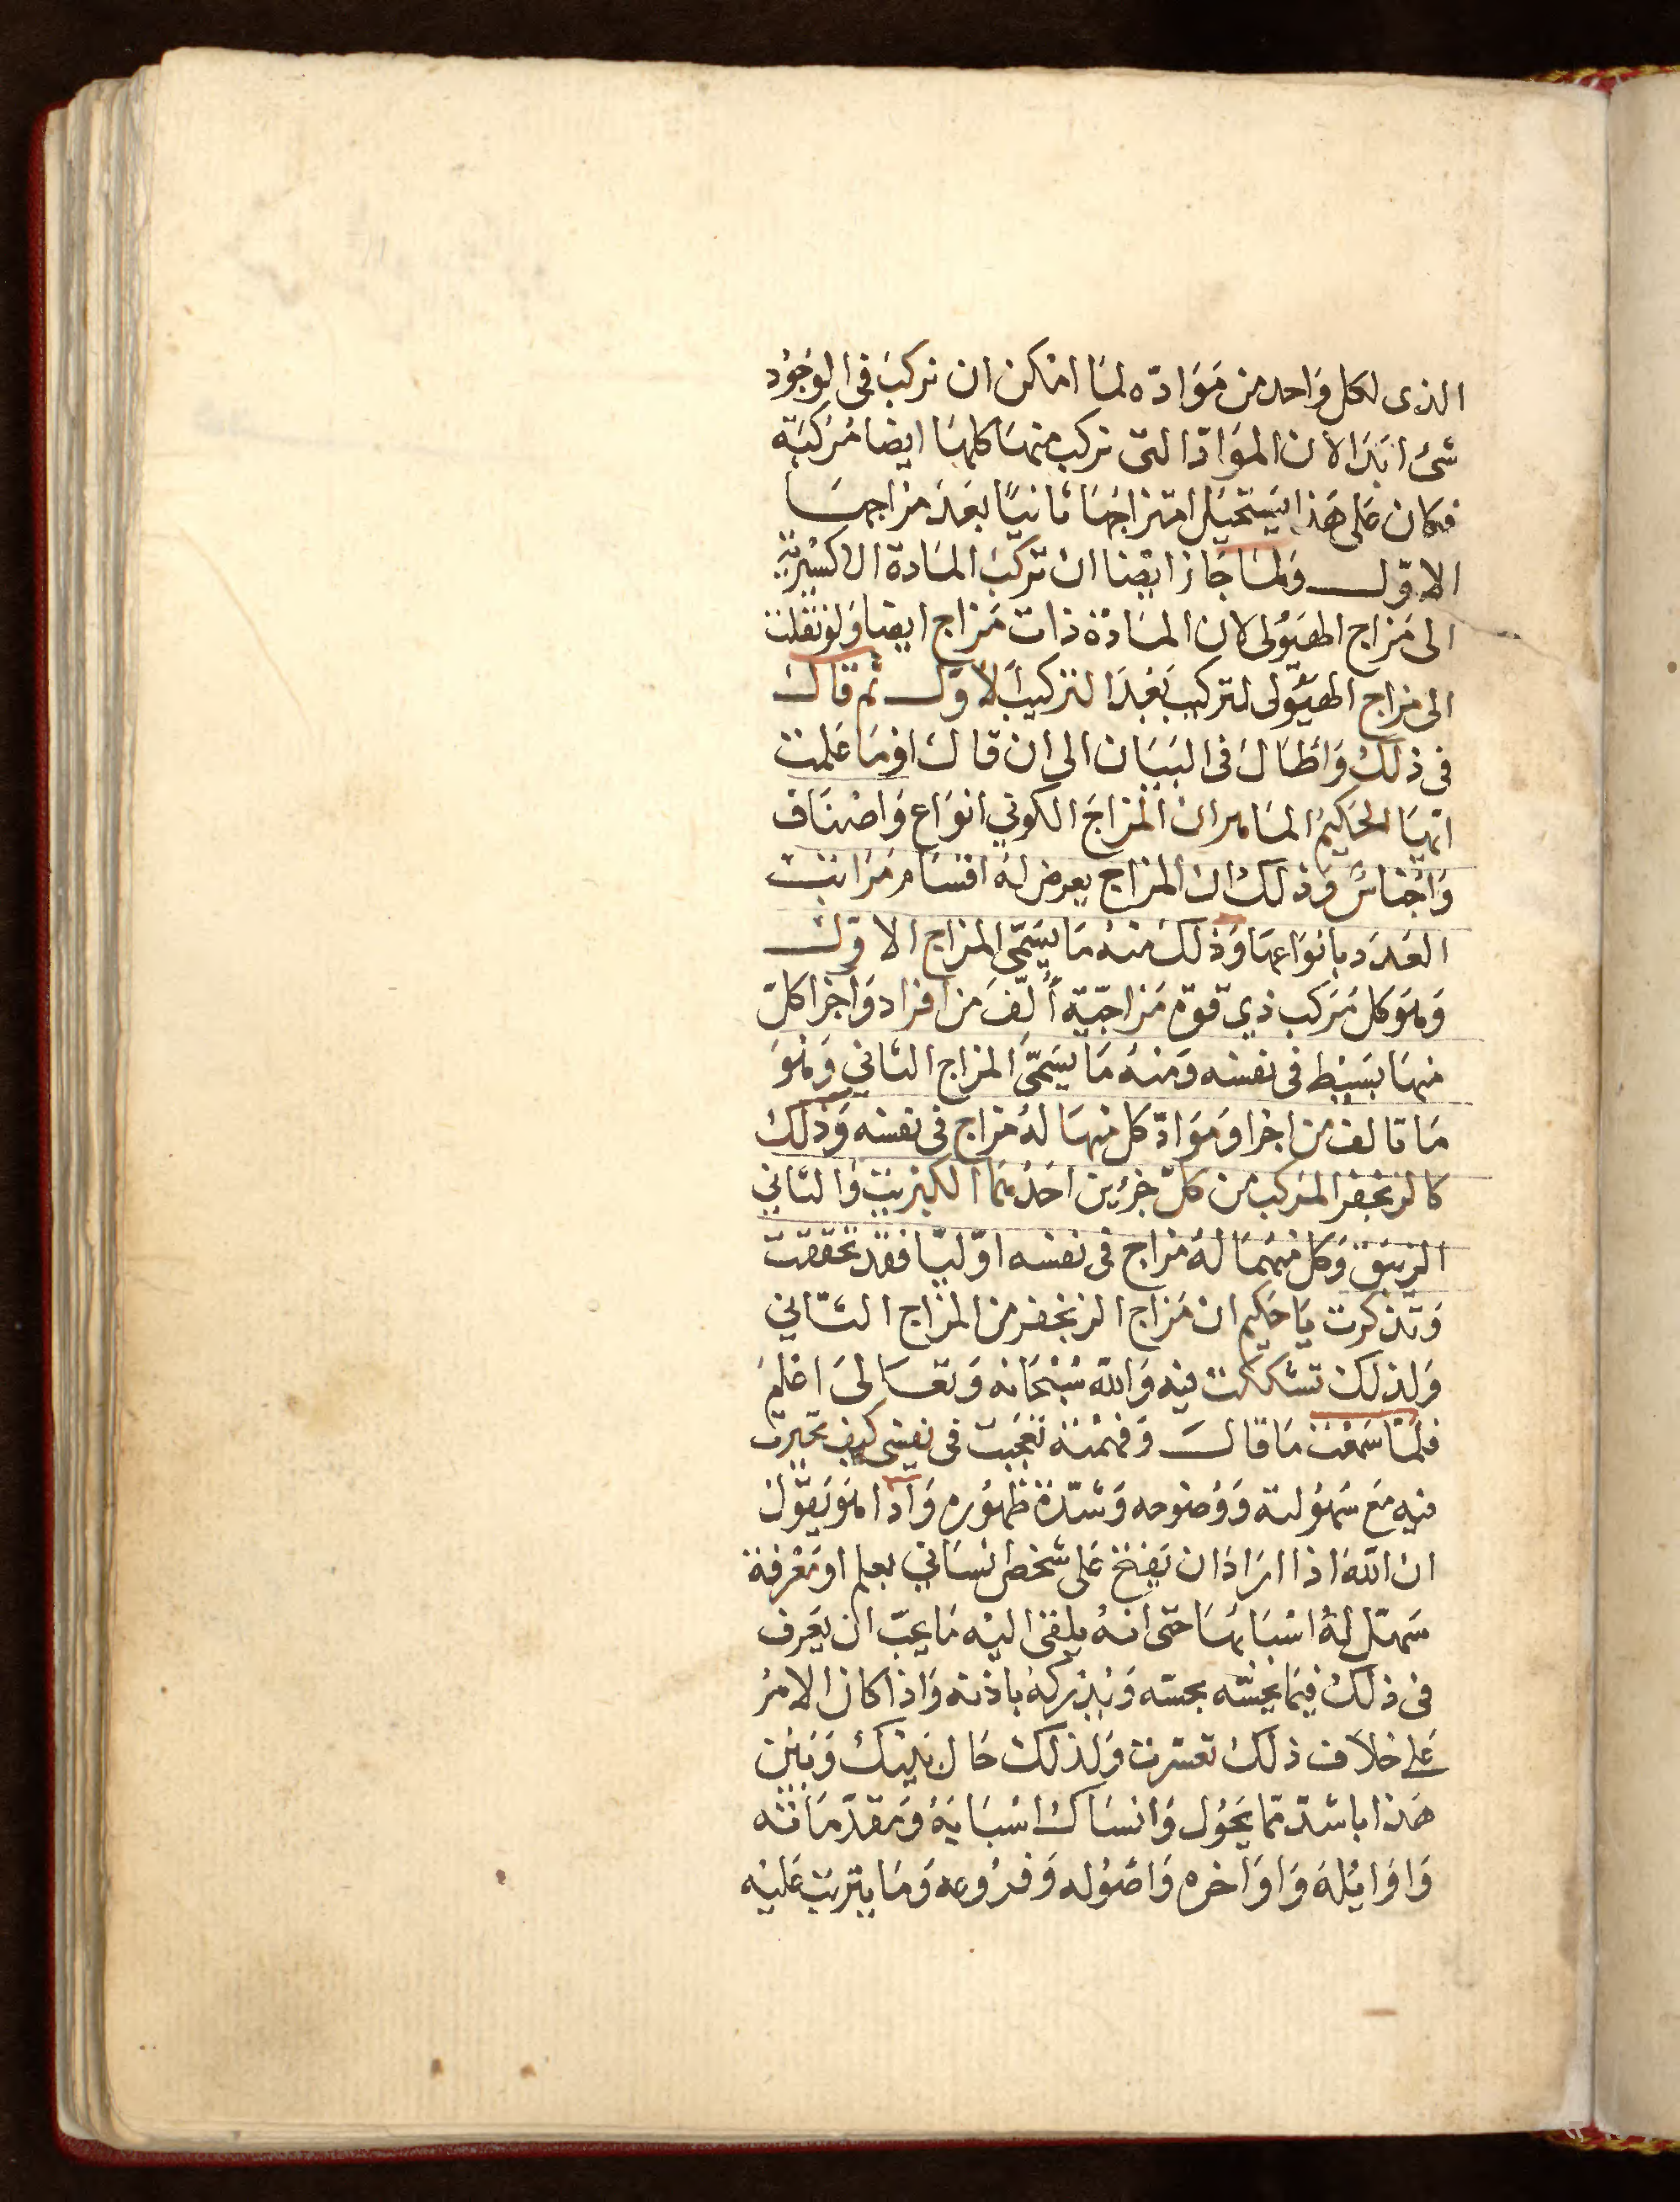 الذى لكل واحد من مَوَادّه لمَا امْكن ان تركبَ فى الوجوُد
شئ ابَدَا لان الموَادّ التى تركب منهَا كلهَا ايضا مُركبَة
فكان عَلى هَذا يَستحيَل امتزاجُهَا ثانيًا بعَدَ مزاجهَا
الاوّل ولمَا جَاز ايضا ان تركبَ المَادة الاكسْيريّة
الى مَزاج الهيَوُلى لان المادّة ذات مَزاج ايضا وَلو نقلت
الى مزاج الهيَوُلى لتركبَ بَعْدَ التركيب الاوّل ثم قال
فى ذلك وَاطَال فى البيَان الى ان قال اومَا عَلمت
ايّهَا الحَكيمُ الماهر ان المزاجَ الكوني انوَاع وَاصْنَاف
وَاجْناسٌ وَذلك ان المزاج يعرض له اقسَام مَرَاتب
العَدَد بانوَاعهَا وَذلك منهُ مَا يُسَمّى المزاج الاوّل
وَهوَ كل مُرَكب ذي قوّة مَزاجيّة أُلّفَ من افراد وَاجزا كلّ
منهَا بَسيْط فى نفسه وَمنهُ مَا يسَمّىَ المزاج الثاني وَهوَ
مَا تالف من اجزا وَمَوَادّ كل منهَا لهُ مزاج فى نفسه وَذلك
كالزنجفر المرَكب من كلّ جزءَين احَدُهمَا الكبْريت وَالثاني
الزيبَق وَكل منهمَا لهُ مزاج فى نفسه اوّليّا فقد تحققت
وَتذكرت يَا حَكيم ان مَزاج الزنجفر من المزاج الثاني
وَلذلك تشككت فيه وَالله سُبْحَانه وَتعَالىَ اعْلم
فلمّا سَمعْت مَا قال وَفهمْته تعَجّبت فى نفسي كيف تحيرت
فيه مَع سُهوُلته وَوُضوحه وَشدّة ظهوُره وَاذا هوَ يَقوُل
ان الله اذا ارَاد ان يَفتح عَلى شخص انسَاني بعلم او مَعْرفة
سَهّل لهُ اسْبَابهَا حَتى انهُ يلقى اليْه مَا يحبّ ان يعَرف
فى ذلك فيمَا يحسّه بحسّه وَيُدركهُ باذنه وَاذا كان الامْرُ
عَلى خلاف ذلك تعسّرت وَلذلك حَال بَينك وَبَيْن
هَذا باشدّ مّا يَحوُل وَانسَاك اسْبَابَهُ وَمقدّمَاته
وَاوَايلهُ وَاوَاخره وَاصُوُله وَفروُعه وَمَا يترتب عَليْه